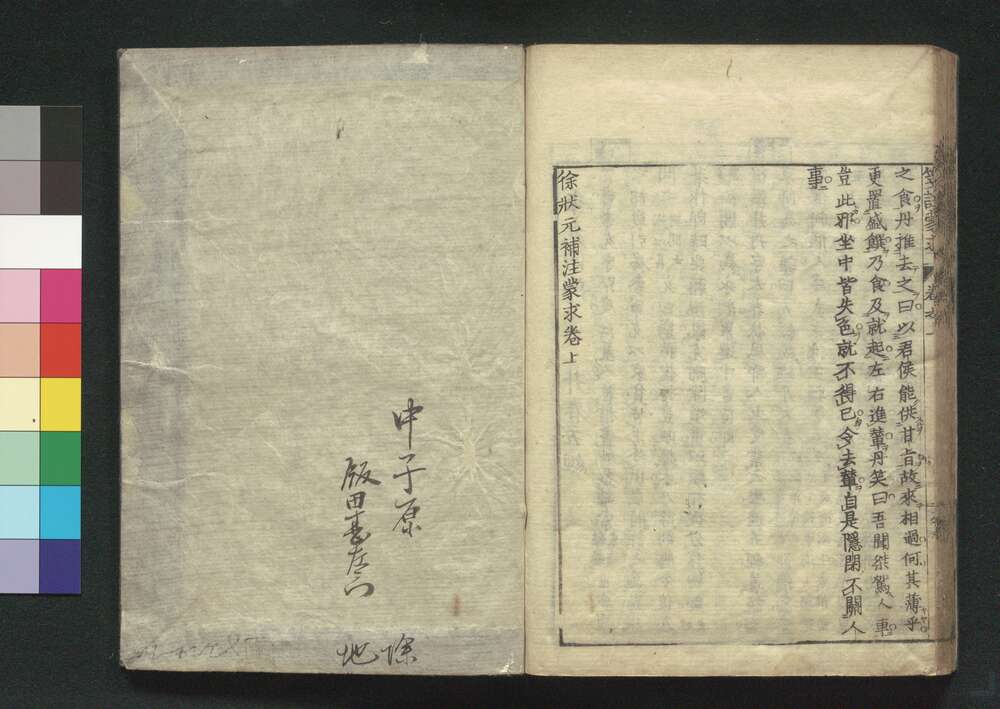 之食丹推去之曰以君侯能供甘旨故來相過何其薄乎
更置盛饌乃食及就起左右進輦丹笑曰吾聞桀駕人車
豈此邪坐中皆失色就不得已令去輦自是隱閉不關人
事
徐狀元補注蒙求卷上
中子原
飯田甚左衛門
除
地